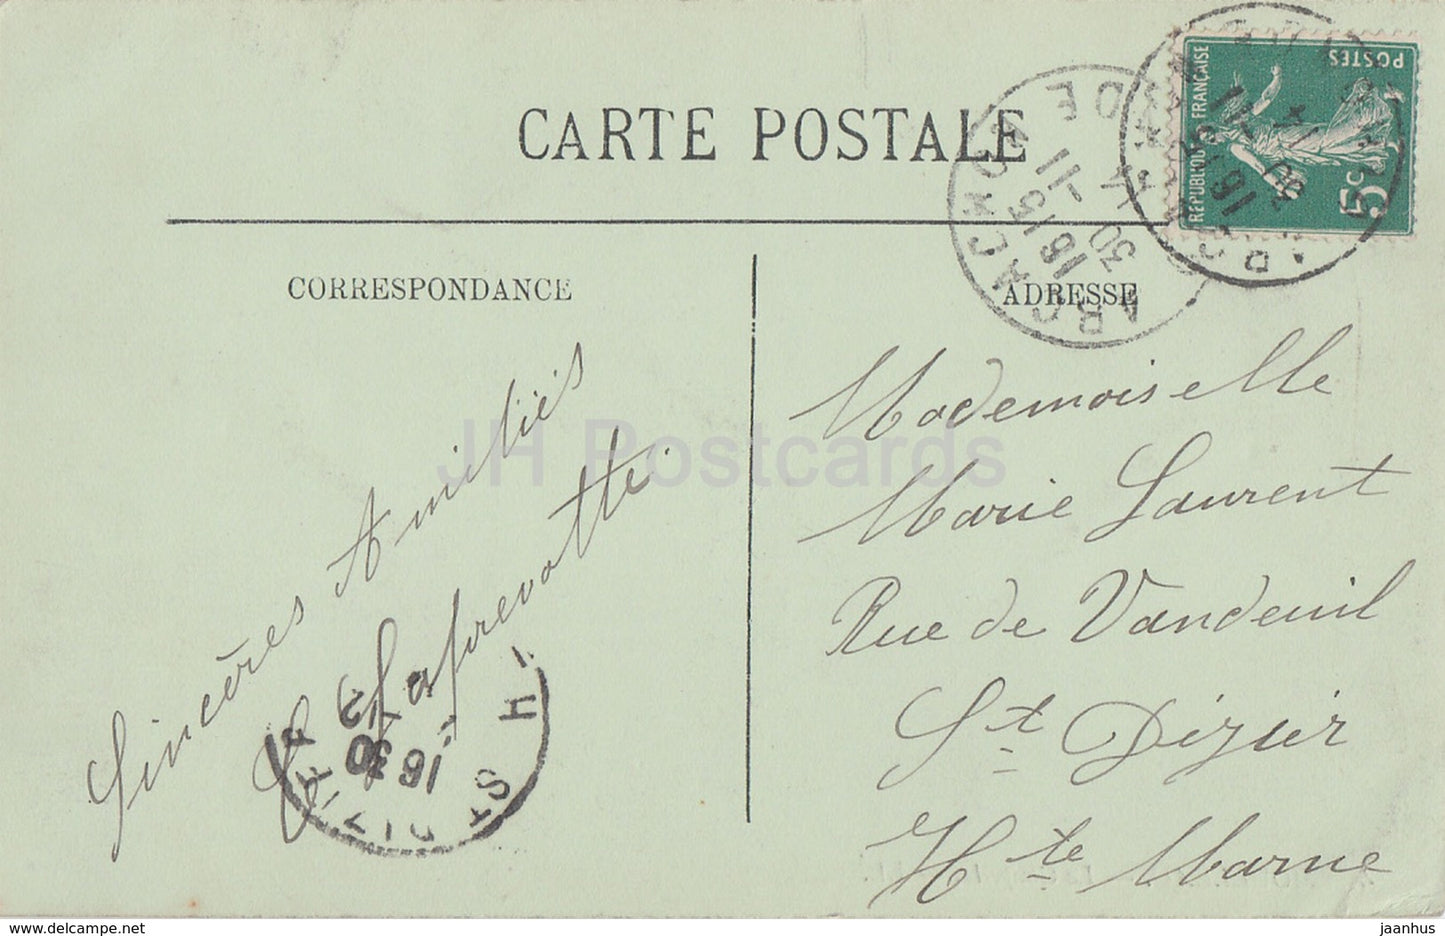 CARTE POSTALE
POSTES
REPUBLIQUE FRANÇAISE
5c
ARCACHON
16 15
30 -11
GIRONDE
CORRESPONDANCE
ADRESSE
Sincères Amitiés
Mademoiselle
Marie Laurent
Rue de Vandeuil
St Dizier
Hte Marne
ST DIZIER
16 30
JH Postcards
www.delcampe.net
jaanhus